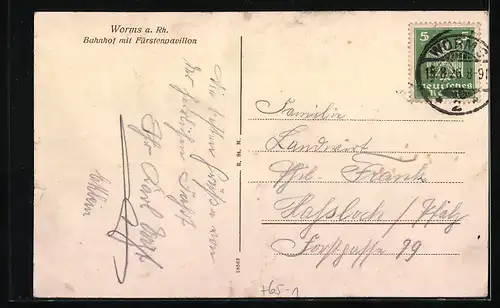 Worms a. Rh.
Bahnhof mit Fürstenpavillon
Die besten Grüße von
der herrlichen Fahrt
Ihr Karl
5 5
Deutsches
WORMS
19.8.26. 8-9
2
Familie
Landwirt
Phil. Frank
Hassloch / Pfalz
Forstgasse 99
R. St. M.
+65-1